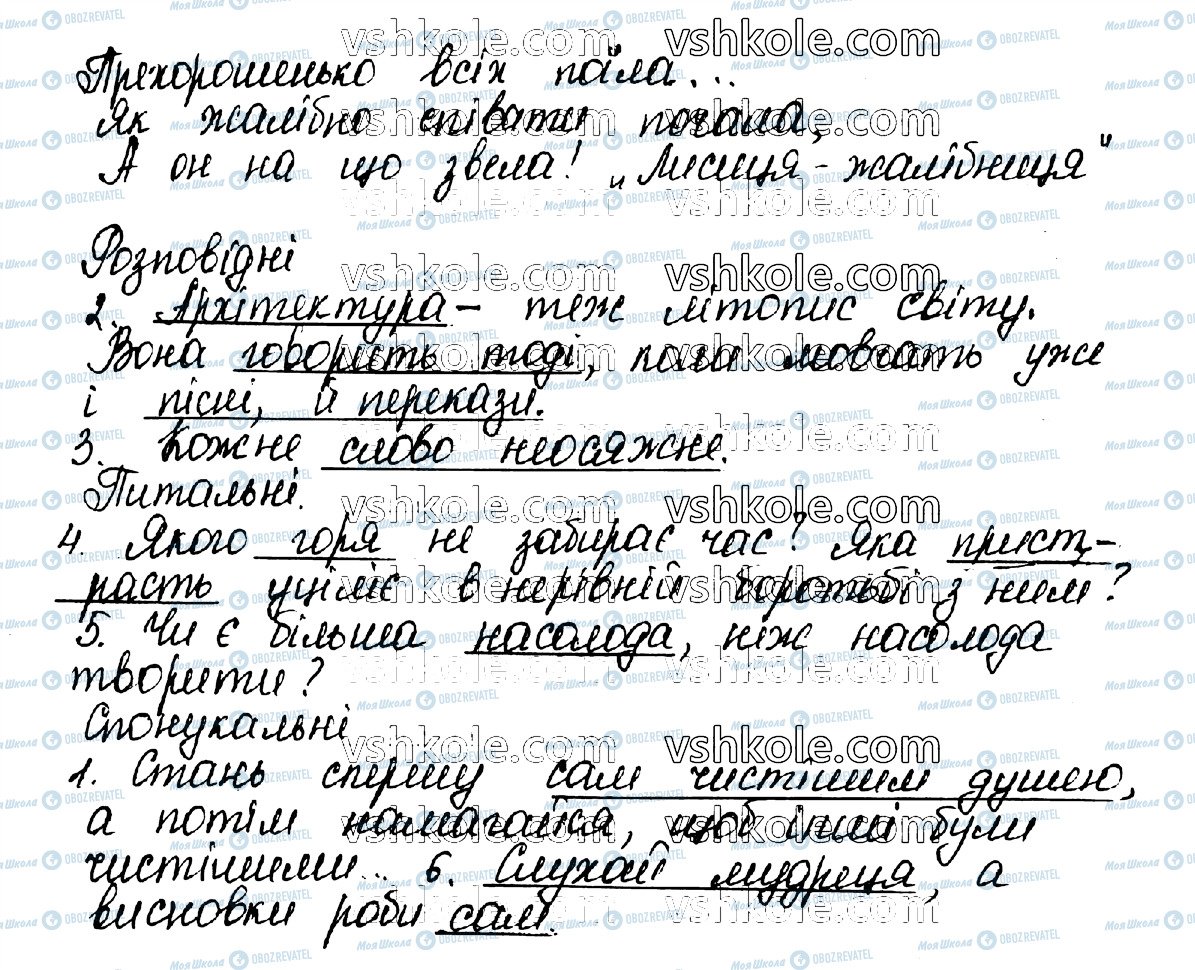 Прехорошенько всіх паїла...
Як жалібно співати почала,
А он на що звела! „Лисиця - жалібниця"
Розповідні
2. Архітектура – теж літопис світу.
Вона говорить тоді, коли мовчать уже
і пісні, й перекази.
3. Кожне слово неосяжне.
Питальні.
4. Якого горя не забирає час? Яка прист-
расть уціліє в нерівній боротьбі з ним?
5. Чи є більша насолода, ніж насолода
творити?
Спонукальні
1. Стань спершу сам чистішим душею,
а потім намагайся, щоб інші були
чистішими... 6. Слухай мудреця, а
висновки роби сам.
vshkole.com
Моя Школа OBOZREVATEL